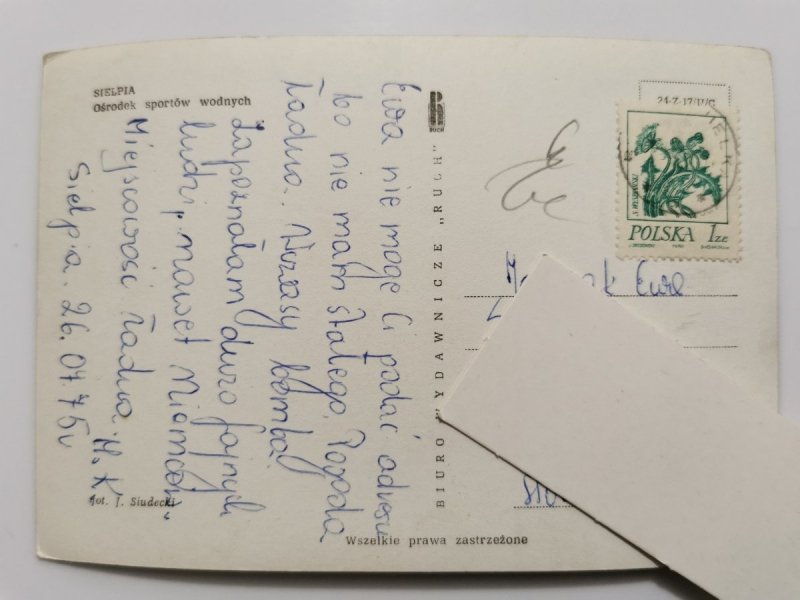 SIELPIA
Ośrodek sportów wodnych
Ewa nie mogę Ci podać adresu
bo nie mam stałego. Pogoda
ładna. Wczasy bomba.
Zapoznałam dużo fajnych
ludzi, nawet Niemców.
Miejscowość ładna. H. K
Sielpia. 26.07.75r
fot. T. Siudecki
BIURO WYDAWNICZE „RUCH”
RUCH
Wszelkie prawa zastrzeżone
S. WYSPIAŃSKI
POLSKA 1ZŁ
Ewa